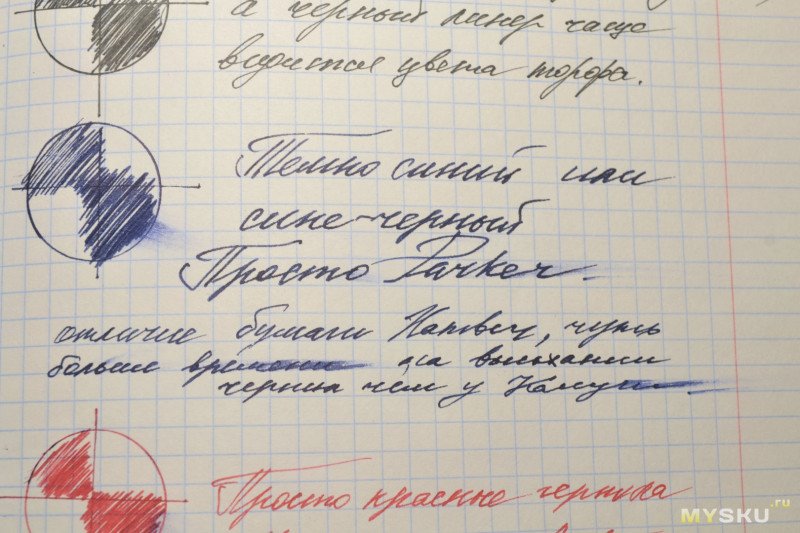 а черный линер чаще
водится цвета торфа.
Темно синий или
сине-черный
Просто Parker.
отличие бумаги чуть
больше времени на высыхании
чернил чем у
Просто красные чернила
MYSKU.ru